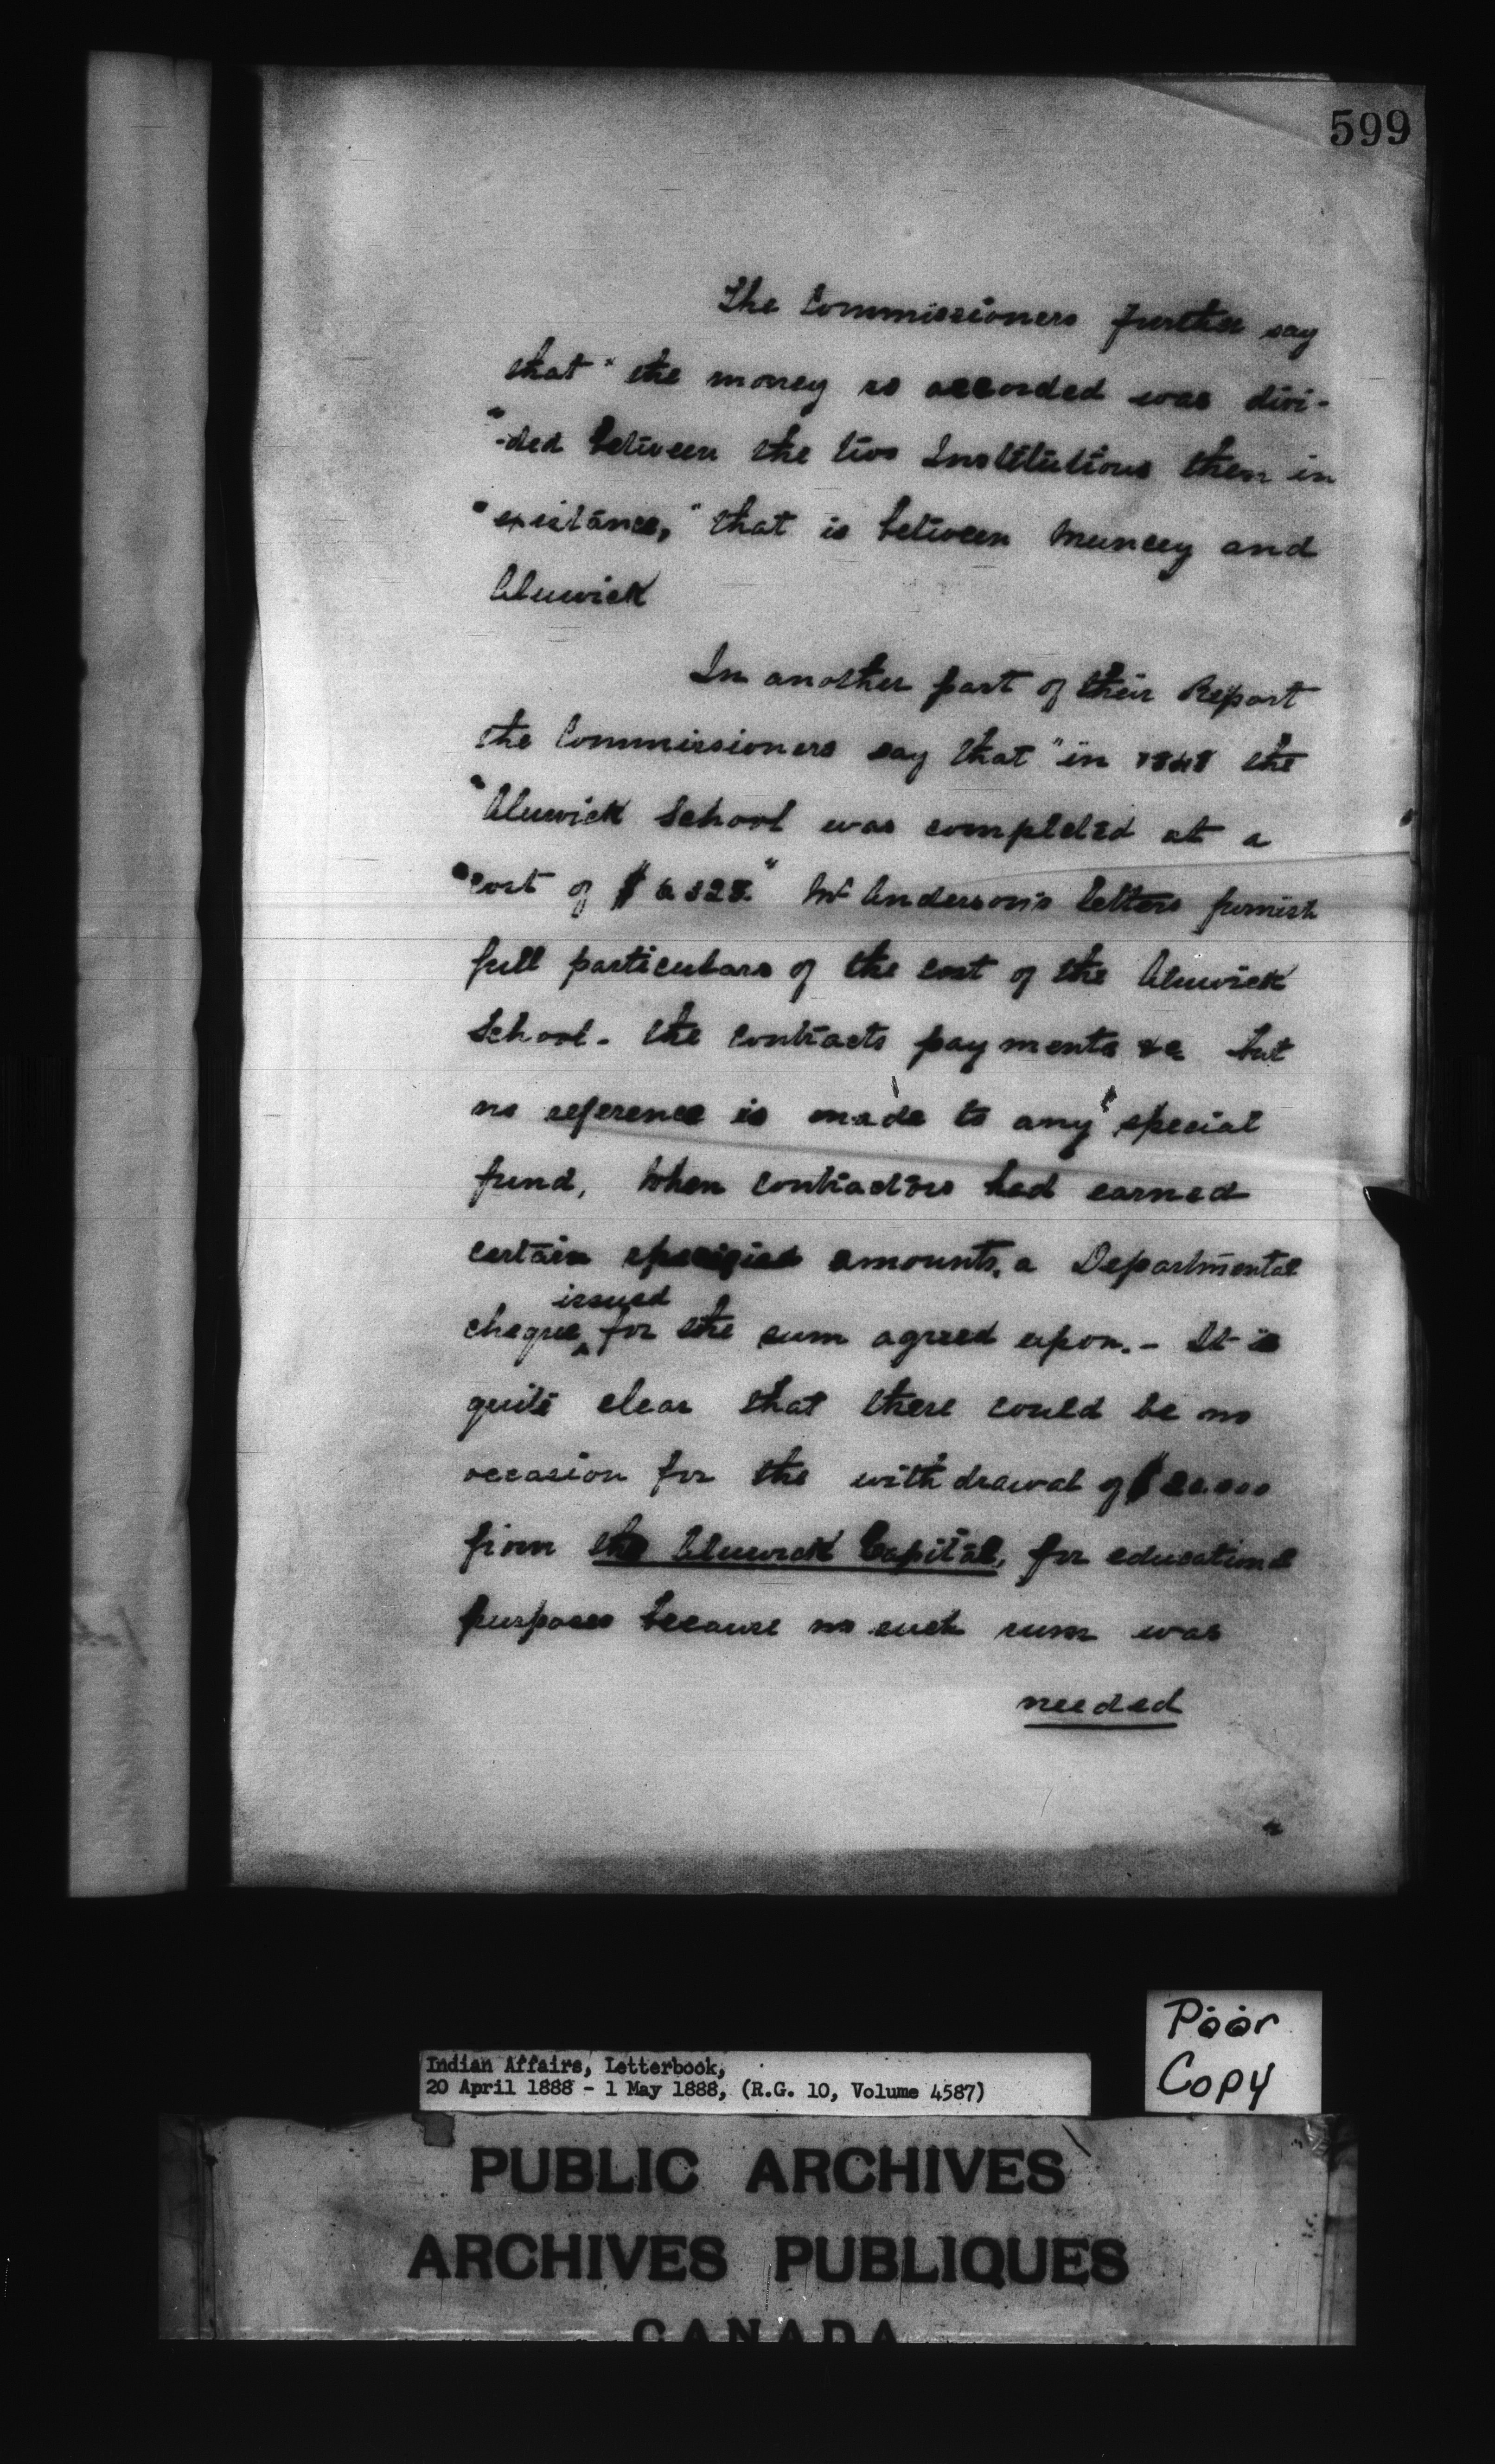 599
The Commissioners further say
that "the money so accorded was divi-
"-ded between the two Institutions then in
"existance," that is between Muncey and
Alnwick
In another part of their Report
the Commissioners say that "in 1848 the
"Alnwick School was completed at a
"cost of $ 6328." Mr Anderson's letters furnish
full particulars of the cost of the Alnwick
School - the contracts payments &c but
no reference is made to any special
fund, When contractors had earned
certain specified amounts, a Departmental
issued
cheque ^ for the sum agreed upon. - It is
quite clear that there could be no
occasion for the withdrawal of $20.000
from the Alnwick Capital, for educational
purposes because no such sum was
needed
Poor
Copy
Indian Affairs, Letterbook,
20 April 1888 - 1 May 1888, (R.G. 10, Volume 4587)
PUBLIC ARCHIVES
ARCHIVES PUBLIQUES
CANADA